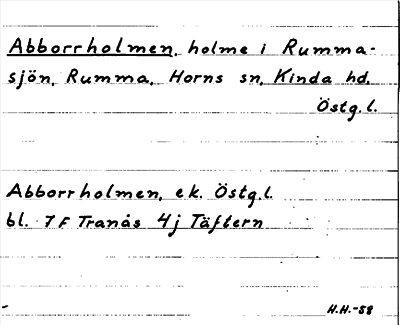 Abborrholmen, holme i Rumma-
sjön, Rumma, Horns sn, Kinda hd,
Östg.l.
Abborrholmen, e.k. Östg.l.
bl. 7F Tranås 4j Täftern
H.H.-58